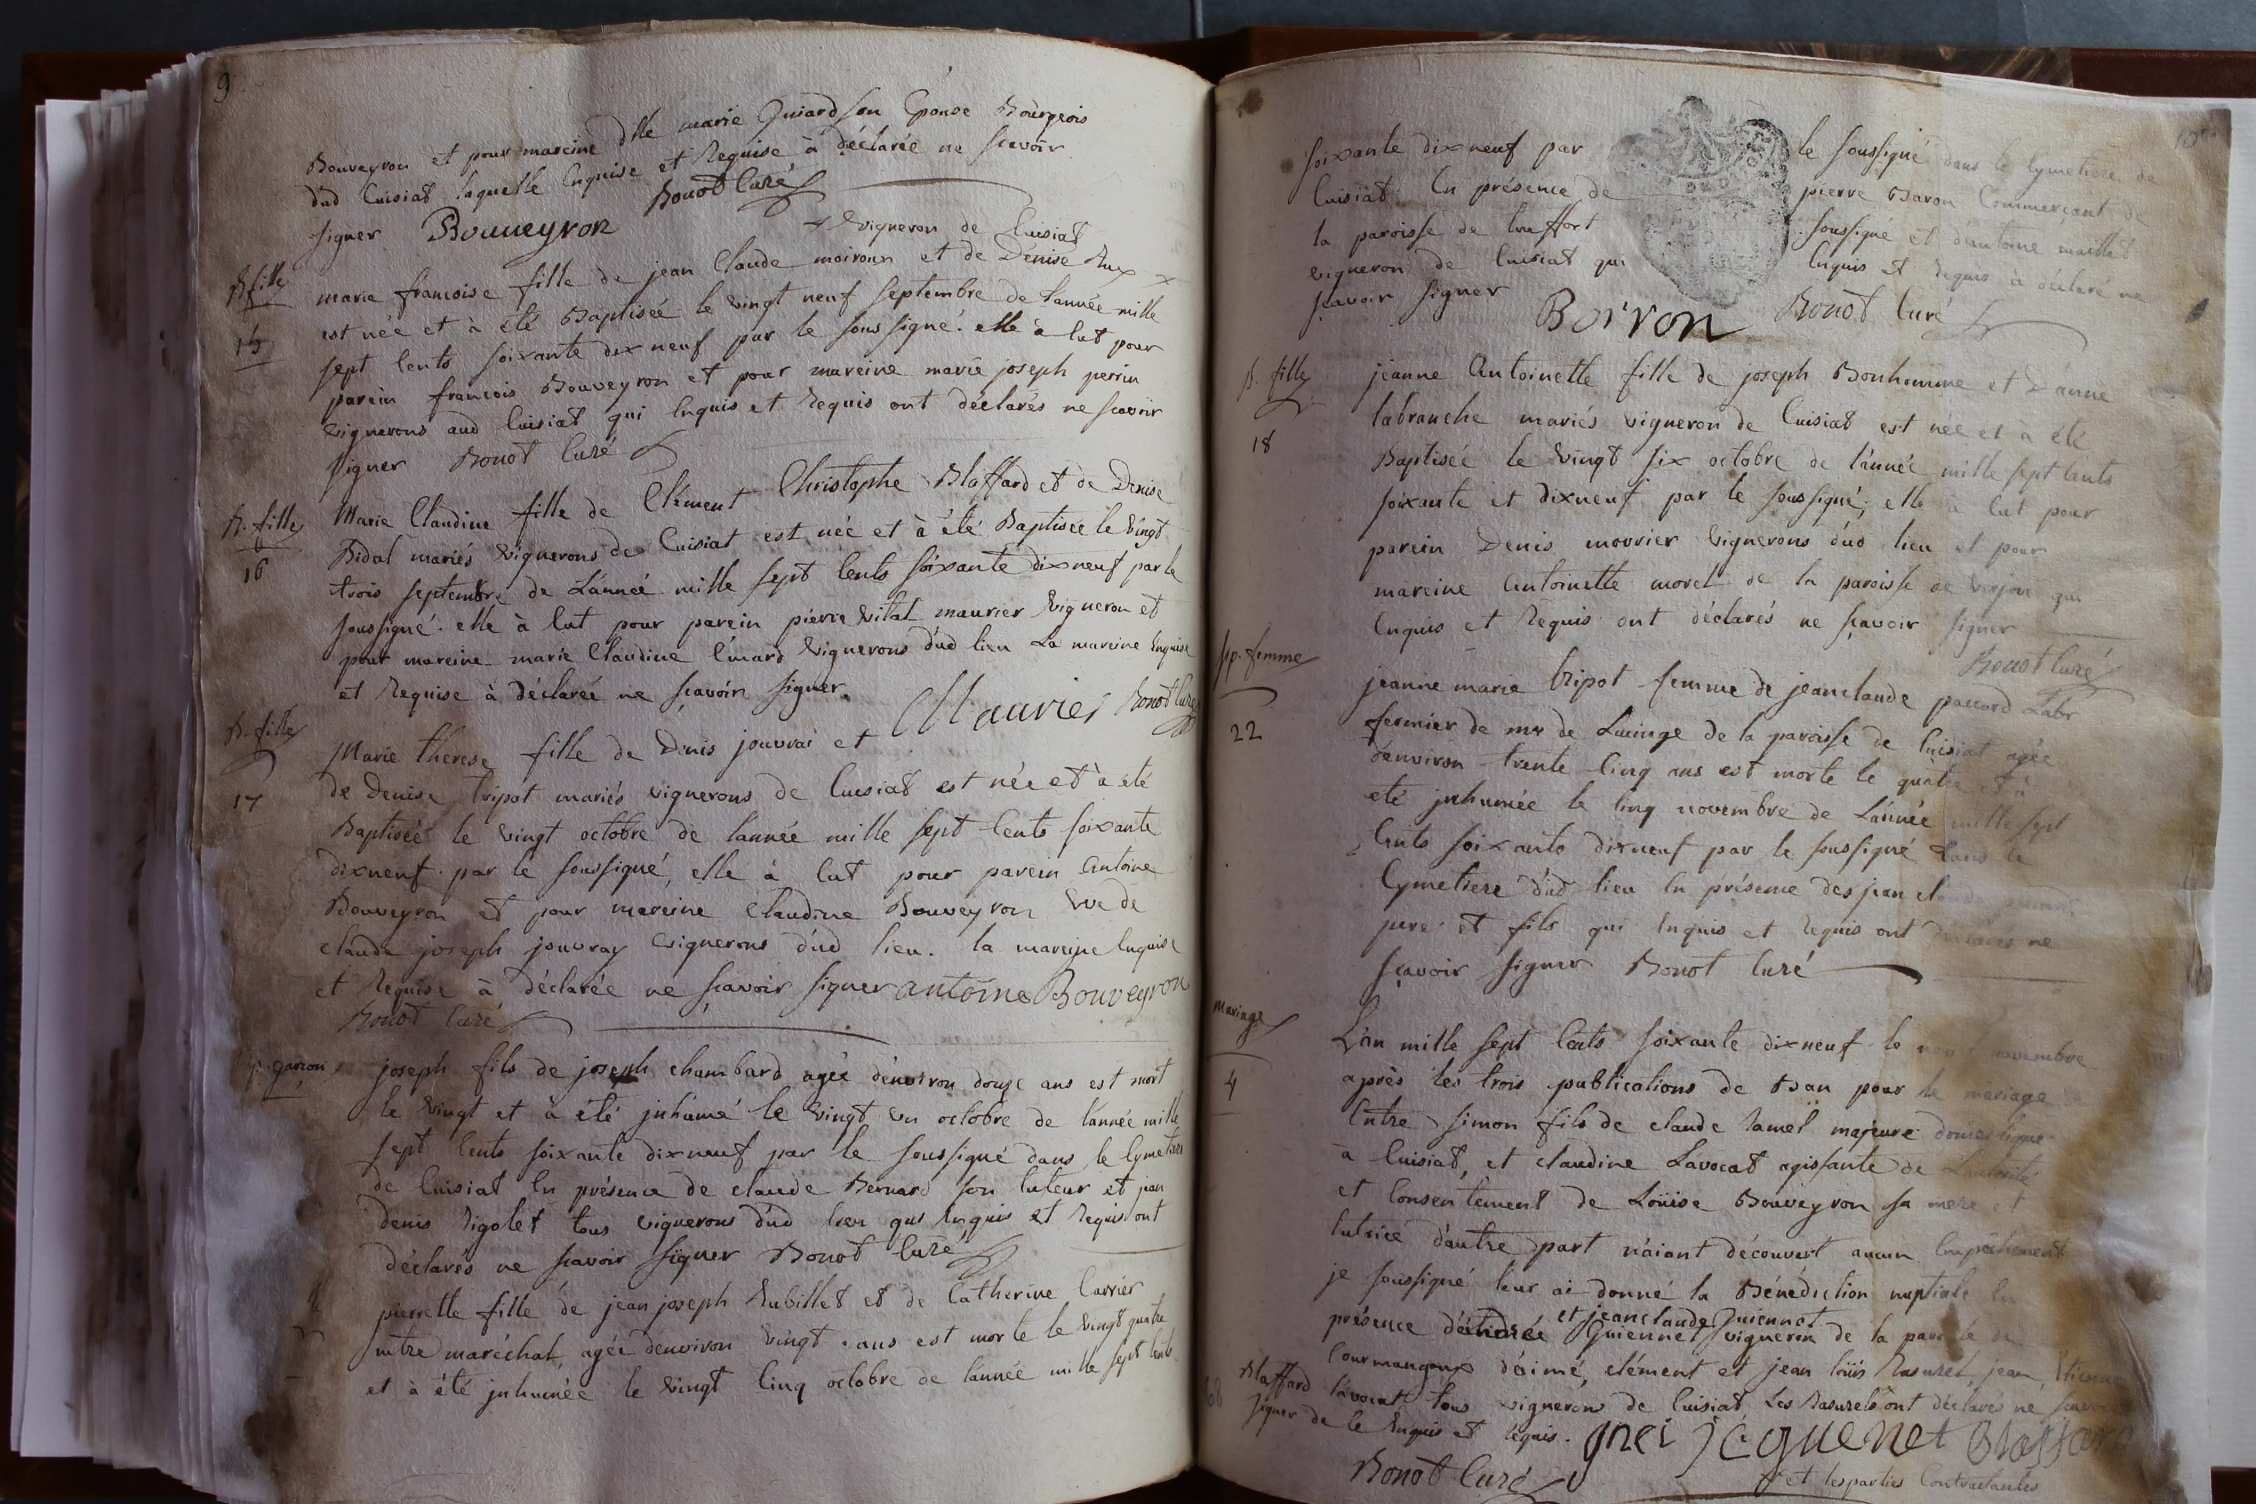 9
Bouveyron et pour mareine dlle marie Guiard son Epouse Bourgeois
dud Cuisiat laquelle Enquise et Requise à déclarée ne scavoir
signer Bouveyron Bonot Curé
+ vigneron de Cuisiat
B. fille
15
marie francoise fille de jean Claude moiroux et de Denise Rux +
est née et à été Baptisée le vingt neuf septembre de lannée mille
sept Cents soixante dix neuf par le soussigné. elle à Eut pour
parein francois Bouveyron et pour mareine marie joseph perrin
vignerons aud Cuisiat qui Enquis et Requis ont déclarés ne scavoir
signer Bonot Curé
B. fille
16
Marie Claudine fille de Clément Christophe Blaffard et de Denise
Bidal mariés vignerons de Cuisiat est née et à été Baptisée le vingt
trois septembre de L'année mille sept Cents soixante dixneuf par le
soussigné. elle à Eut pour parein pierre vital maurier vigneron et
pour mareine marie Claudine Emard vignerons dud lieu La mareine Enquise
et Requise à déclarée ne scavoir signer. Maurier Bonot Curé
B. fille
17
Marie therese fille de Denis jouvrai et
de Denise tripot mariés vignerons de Cuisiat est née et à été
Baptisée le vingt octobre de lannée mille sept Cents soixante
dixneuf par le soussigné, elle à Eut pour parein Antoine
Bouveyron et pour mareine Claudine Bouveyron vve de
claude joseph jouvray vignerons dud lieu. la mareine Enquise
et Requise à déclarée ne scavoir signer antoine Bouveyron
Bonot Curé
garcon
joseph fils de joseph chambard agée d'environ douze ans est mort
le vingt et à été jnhumé le vingt un octobre de l'année mille
sept Cents soixante dixneuf par le soussigné dans le Cymetiere
de Cuisiat En présence de claude Bernard son tuteur et jean
denis Rigolet tous vignerons dud lieu qui Enquis et Requis ont
déclarés ne scavoir signer Bonot Curé
pierrette fille de jean joseph Rubillet et de Catherine Carrier
mtre maréchal, agée denviron vingt ans est morte le vingt quatre
et à été jnhumée le vingt Cinq octobre de l'année mille sept Cents
soixante dixneuf par le soussigné dans le Cymetiere de
Cuisiat En présence de pierre Baron Commerçant de
la paroisse de Treffort soussigné et d'antoine maillet
vigneron de Cuisiat qui Enquis et Requis à déclaré ne
scavoir signer Boiron Bonot Curé
B. fille
18
jeanne Antoinette fille de joseph Bonhomme et D'anne
labranche mariés vigneron de Cuisiat est née et à été
Baptisée le vingt six octobre de l'année mille sept Cents
soixante et dixneuf par le soussigné, elle à Eut pour
parein Denis mourier vignerons dud lieu et pour
mareine Antoinette morel de la paroisse de verjon qui
Enquis et Requis ont déclarés ne scavoir signer
Bonot Curé
sp. femme
22
jeanne marie tripot femme de jeanclaude Labr
fermier de mr de Lucinge de la paroisse de Cuisiat agée
denviron trente Cinq ans est morte le quatre et à
eté jnhumée le Cinq novembre de L'année mille sept
Cents soixante dixneuf par le soussigné dans le
Cymetiere dud lieu En présence des jean
pere et fils qui Enquis et Requis ont déclarés ne
scavoir signer Bonot Curé
Mariage
4
L'an mille sept Cents soixante dixneuf le novembre
après les trois publications de Ban pour le mariage
Entre simon fils de claude Ramel majeure domestique
à Cuisiat, et claudine Lavocat agissante de L'autorité
et Consentement de Loüise Bouveyron sa mere et
tutrice d'autre part n'aiant découvert aucun Empêchement
je soussigné leur ai donné la Bénédiction nuptiale En
et jeanclaude Guiennet
présence Guiennet vigneron de la paroisse de
Courmangoux d'aimé, clément et jean loüis Rasurel, jean, Etienne
Blaffard Lavocat tous vignerons de Cuisiat Les Rasurels ont déclarés ne scavoir
signer de le Enquis et Requis. jcguenet Blaffard
Bonot Curé et les parties Contractantes